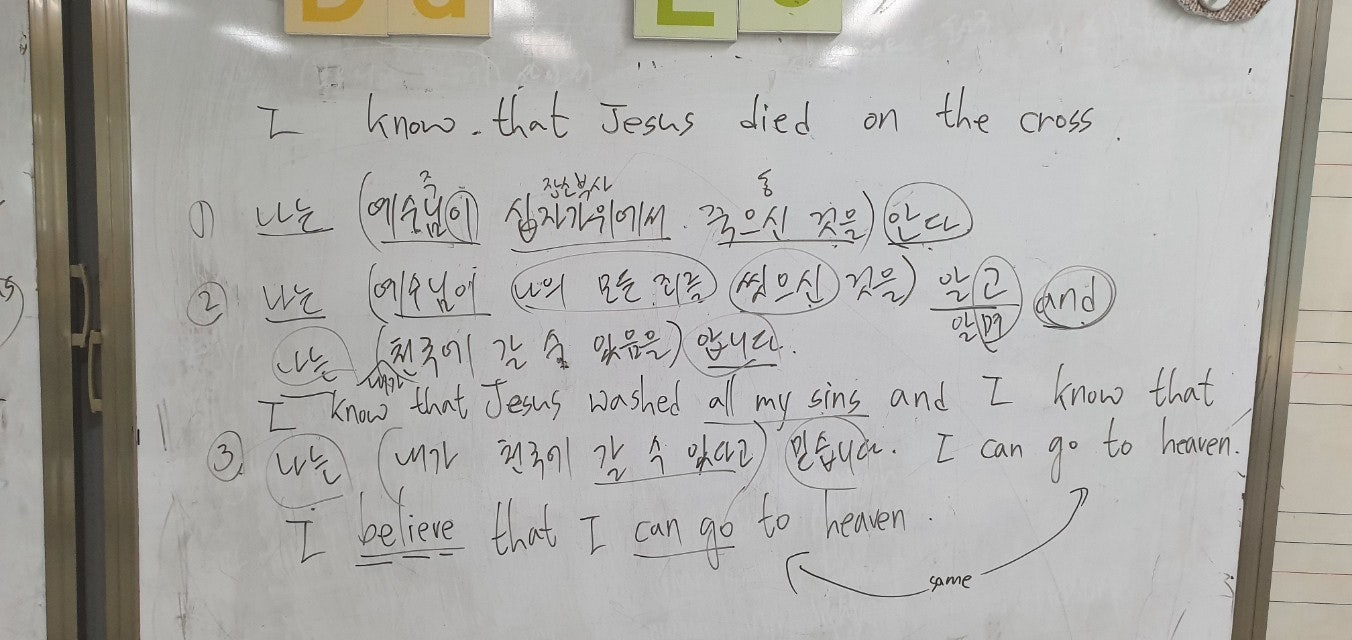 I know that Jesus died on the cross.
주 전소부사 동
① 나는 (예수님이 십자가위에서 죽으신 것을) 안다
② 나는 (예수님이 나의 모든 죄를 씻으신 것을) 알고 and
알며
나는 (천국에 갈 수 있음을) 압니다.
내가
I know that Jesus washed all my sins and I know that
I can go to heaven.
③ 나는 (내가 천국에 갈 수 있다고) 믿습니다.
I believe that I can go to heaven.
same